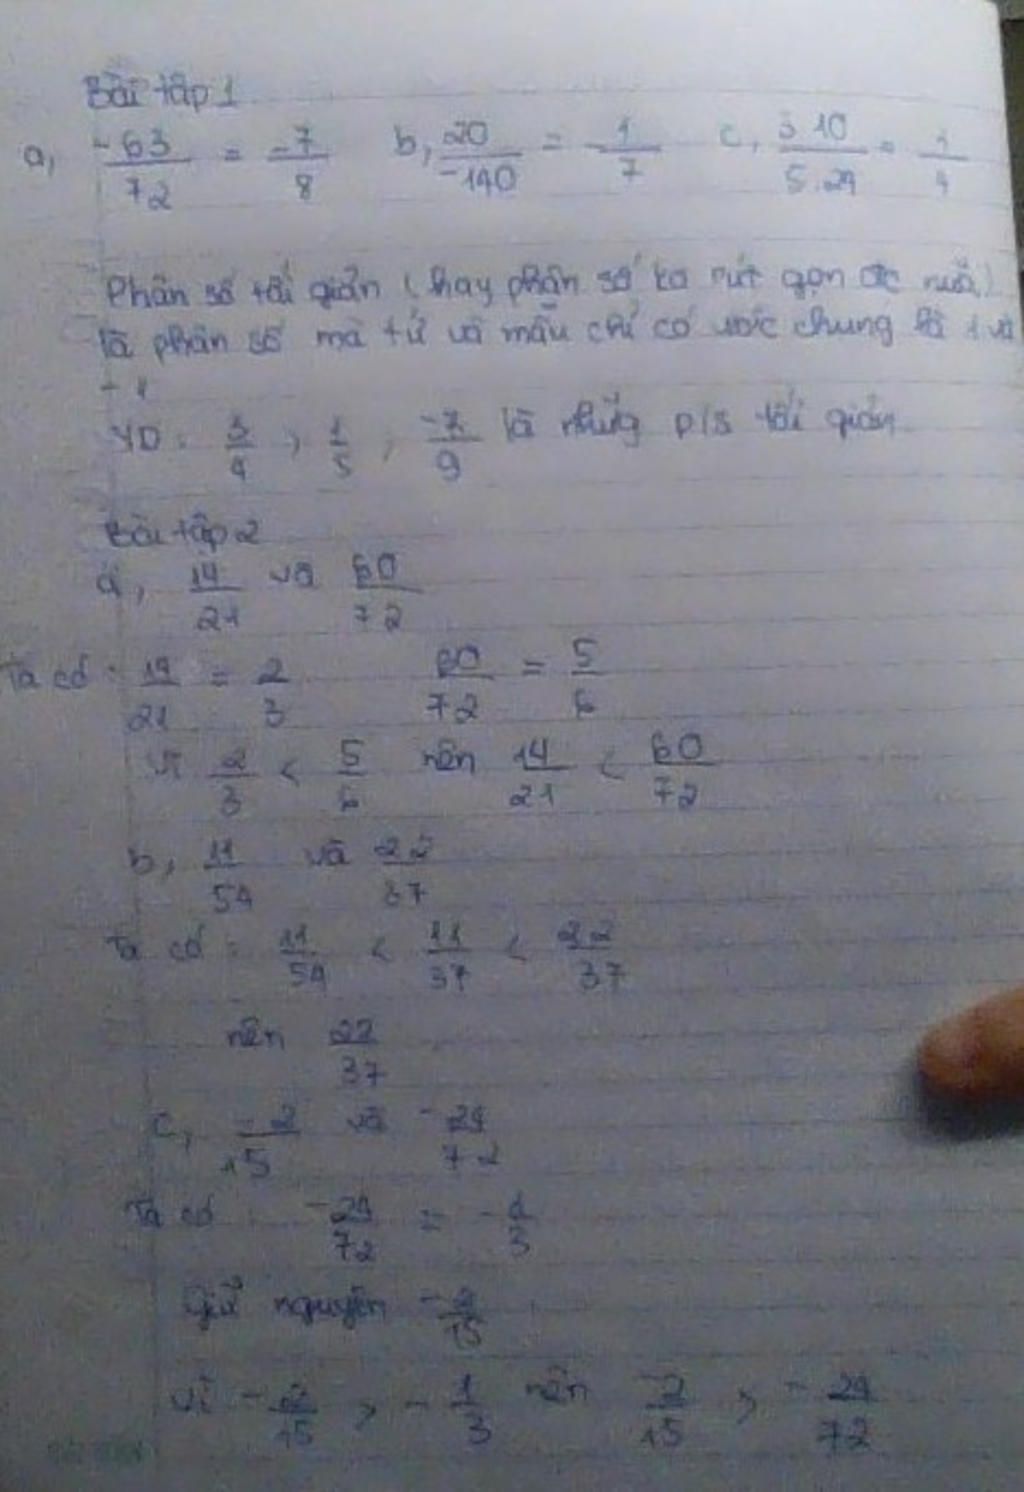 Bài tập 1
a, -63/72 = -7/8 b, 20/-140 = -1/7 c, 3.10/5.24 = 1/4
Phân số tối giản (hay phân số ko rút gọn đc nữa)
là phân số mà tử và mẫu chỉ có ước chung là 1 và
-1
VD: 3/4 ; 1/5 ; -7/9 là những p/s tối giản
Bài tập 2
a, 14/21 và 60/72
Ta có: 14/21 = 2/3 60/72 = 5/6
Vì 2/3 < 5/6 nên 14/21 < 60/72
b, 11/54 và 22/37
Ta có: 11/54 < 11/37 < 22/37
nên 22/37
c, -2/15 và -24/72
Ta có -24/72 = -1/3
Giữ nguyên -2/15
Vì -2/15 > -1/3 nên -2/15 > -24/72